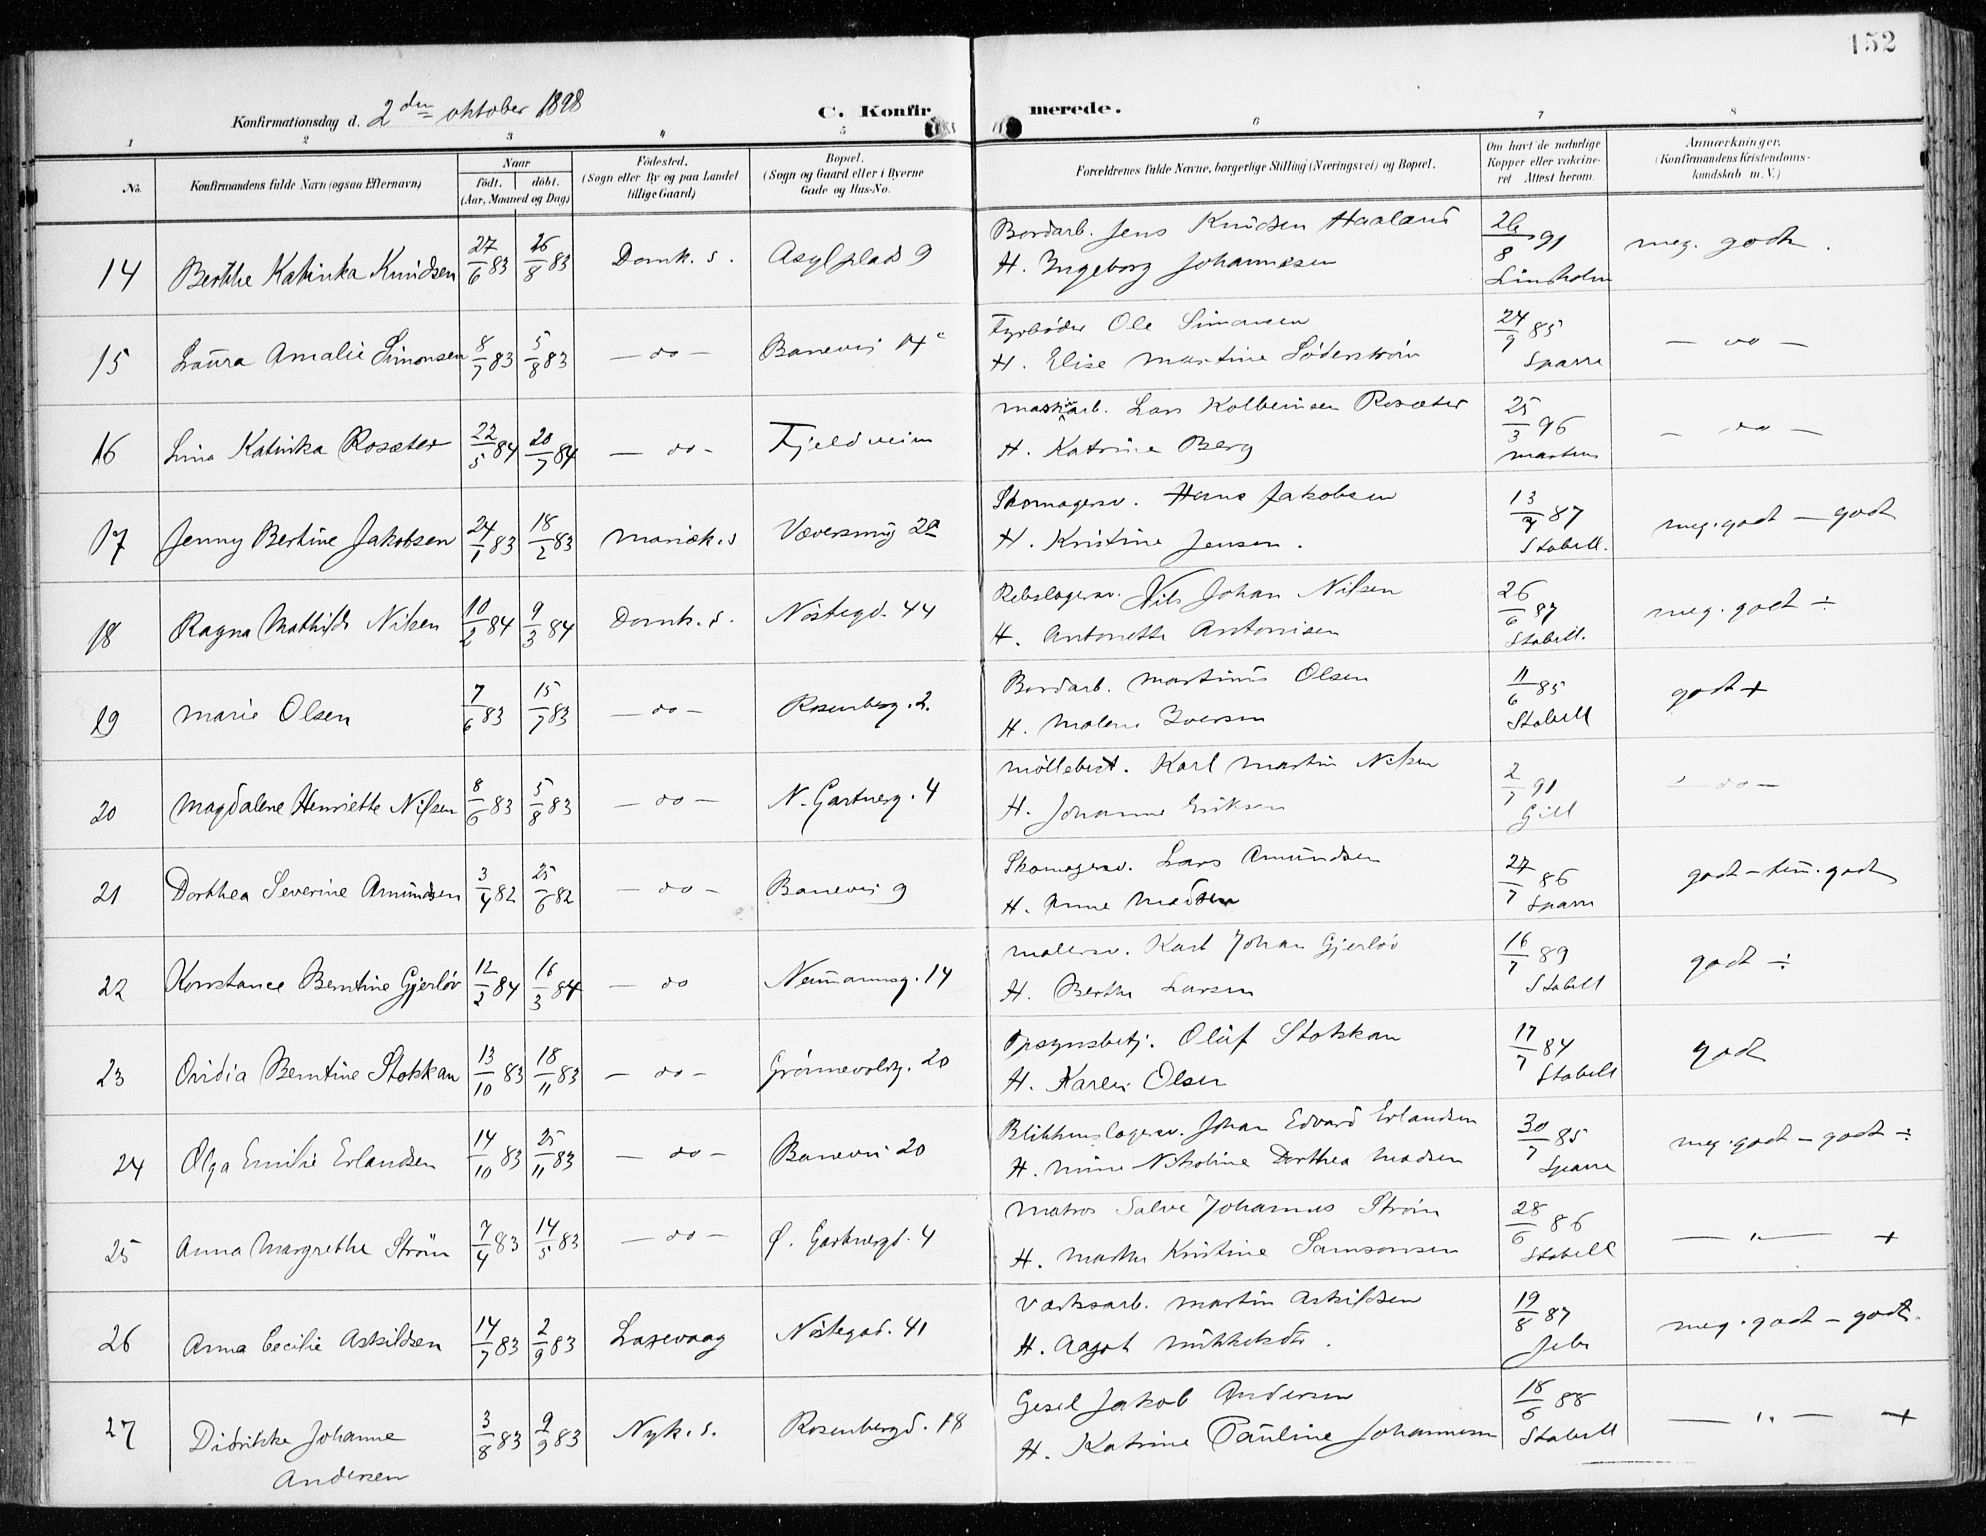 152
Konfirmationsdag d. 2den oktober 1898
C. Konfirmerede.
1 2 3 4 5 6 7 8
No.
Konfirmandens fulde Navn (ogsaa Efternavn)
Naar
født. døbt.
(Aar, Maaned og Dag)
Fødested.
(Sogn eller By og paa Landet tillige Gaard)
Bopæl.
(Sogn og Gaard eller i Byerne Gade og Hus-No.
Forældrenes fulde Navne, borgerlige Stilling (Næringsvei) og Bopæl.
Om havt de naturlige Kopper eller vakcineret Attest herom.
Anmærkninger.
(Konfirmandens Kristendomskundskab m. V.)
14 Berthe Katinka Knudsen 27/6 83 26/8 83 Domk. s. Asylplads 9 Bordarb. Jens Knudsen Haaland 26/8 91 meg. godt.
H. Ingeborg Johannesen Lindholm
15 Laura Amalie Simonsen 8/7 83 5/8 83 — do — Banevei 14c Fyrbøder Ole Simonsen 24/9 85 — do —
H. Elise Martine Søderstrøm Sparre
16 Lina Katinka Rosæter 22/5 84 20/7 84 — do — Fjeldveien maskinarb. Lars Kolbeinsen Rosæter 25/3 96 — do —
H. Katrine Berg Martens
17 Jenny Bertine Jakobsen 24/1 83 18/2 83 Mariæk. s Væversmug 2a Skomagersv. Hans Jakobsen 13/7 87 meg. godt — godt
H. Kristine Jensen. Stabell.
18 Ragna Mathilde Nilsen 10/2 84 9/3 84 Domk. s. Nøstegd. 44 Rebslagersv. Nils Johan Nilsen 26/6 87 meg. godt ÷
H. Antonette Antonisen Stabell.
19 Marie Olsen 7/6 83 15/7 83 — do — Rosenberg. 2. Bordarb. Martinus Olsen 11/6 85 godt +
H. Malene Iversen Stabell
20 Magdalene Henriette Nilsen 8/6 83 5/8 83 — do — N. Gartnerg. 4 Møllebest. Karl Martin Nilsen 2/7 91 — do —
H. Johanne Eriksen Gill
21 Dorthea Severine Amundsen 3/4 82 25/6 82 — do — Banevei 9 Skomagersv. Lars Amundsen 27/7 86 godt — tem. godt
H. Anne Madsen Sparre
22 Konstance Berntine Gjerløv 12/2 84 16/3 84 — do Neumannsg. 14 Malersv. Karl Johan Gjerløv 16/7 89 godt ÷
H. Berthe Larsen Stabell
23 Ovidia Berntine Stokkan 13/10 83 18/11 83 — do — Grønnevoldsg. 20 Opsynsbetj. Oluf Stokkan 17/7 84 godt
H. Karen Olsen Stabell
24 Olga Emilie Erlandsen 14/10 83 25/11 83 — do — Banevei 20 Blikkenslagersv. Johan Edvard Erlandsen 30/7 85 meg. godt — godt ÷
H. Mine Nikoline Dorthea Madsen Sparre
25 Anna Margrethe Strøm 7/4 83 14/5 83 — do — Ø. Gartnergd. 4 Matros Salve Johannes Strøm 28/6 86 — „ — +
H. Marthe Kristine Samsonsen Stabell
26 Anna Cecilie Askildsen 14/7 83 2/9 83 Laxevaag Nøstegad. 41 Værksarb. Martin Askildsen 19/8 87 meg. godt — godt.
H. Aagot Mikkelsdr.
27 Didrikke Johanne Andersen 3/8 83 2/9 83 Nyk. s. Rosenbergd. 18 Gesel Jakob Andersen 18/6 88 — „ — +
H. Katrine Pauline Johannesen Stabell